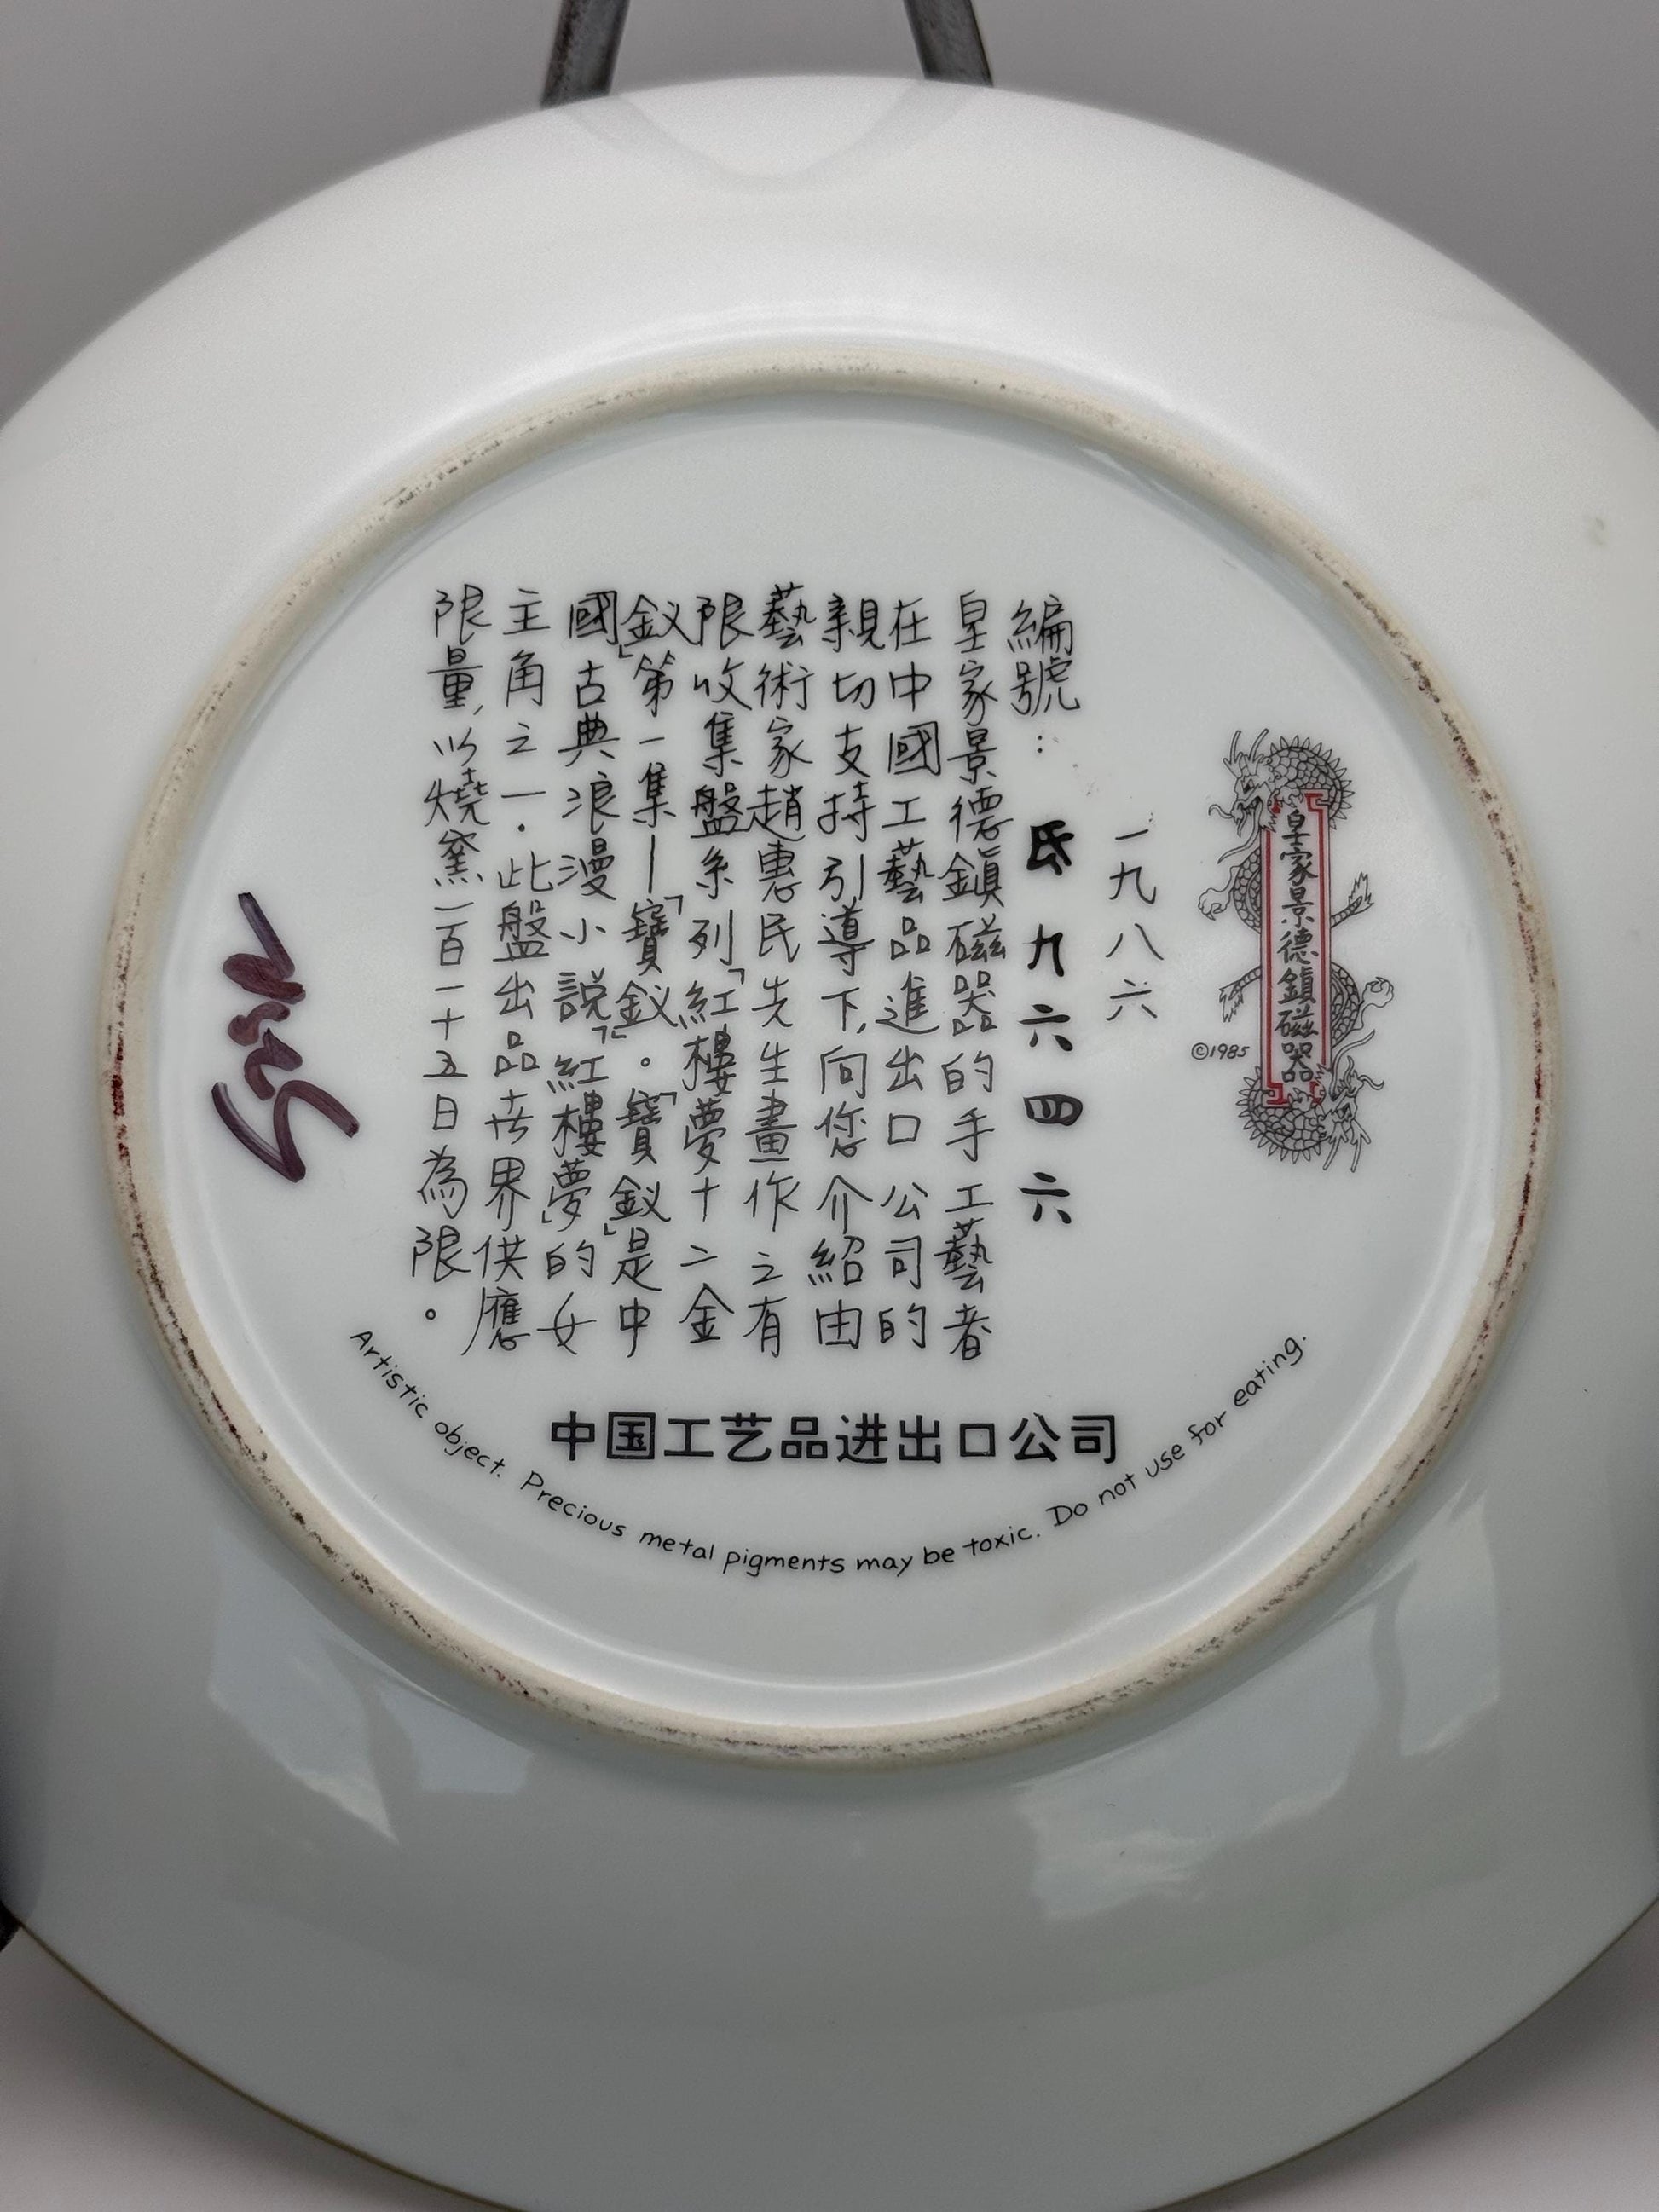 皇家景德鎮磁器
©1985
一九八六
編號：
氏九六四六
皇家景德鎮磁器的手工藝者
在中國工藝品進出口公司的
親切支持引導下,向您介紹由
藝術家趙惠民先生畫作之有
限收集盤系列「紅樓夢十二金
釵」第一集—「寶釵」。「寶釵」是中
國古典浪漫小說「紅樓夢」的女
主角之一.此盤出品世界供應
限量,以燒窯一百一十五日為限。
中国工艺品进出口公司
Artistic object. Precious metal pigments may be toxic. Do not use for eating.